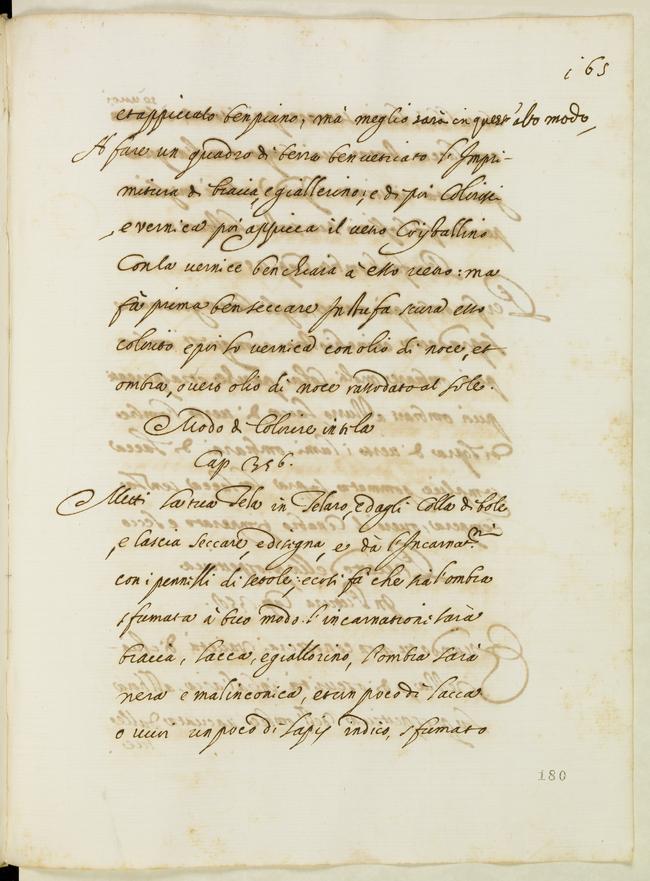 i65
et appiccato ben piano; mà meglio sarà in quest'alto modo,
A fare un quadro di terra ben vetriato l'Impri-
mitura di biacca, e giallorino; e di poi Colorisci
, e vernica poi appicca il vetro Cristallino
Con la vernice ben chiara à esso vetro: ma
fà prima ben seccare In stufa scura esso
colorito e poi lo vernica con olio di noce, et
ombra, overo olio di noce rassodato al sole.
Modo di Colorire in tela
Cap 356.
Metti la tua Tela in Telaro, e dagli Colla di bole
, e lascia seccare, e disegna, e dà l'Incarna.ni
con i pennelli di setole; e così fà che sia l'ombra
sfumata à tuo modo. l'incarnationi sarà
biacca, lacca, e giallorino, l'ombra sarà
nera e malinconica, et un poco di lacca
o vuoi un poco di lapis indico, sfumato
180